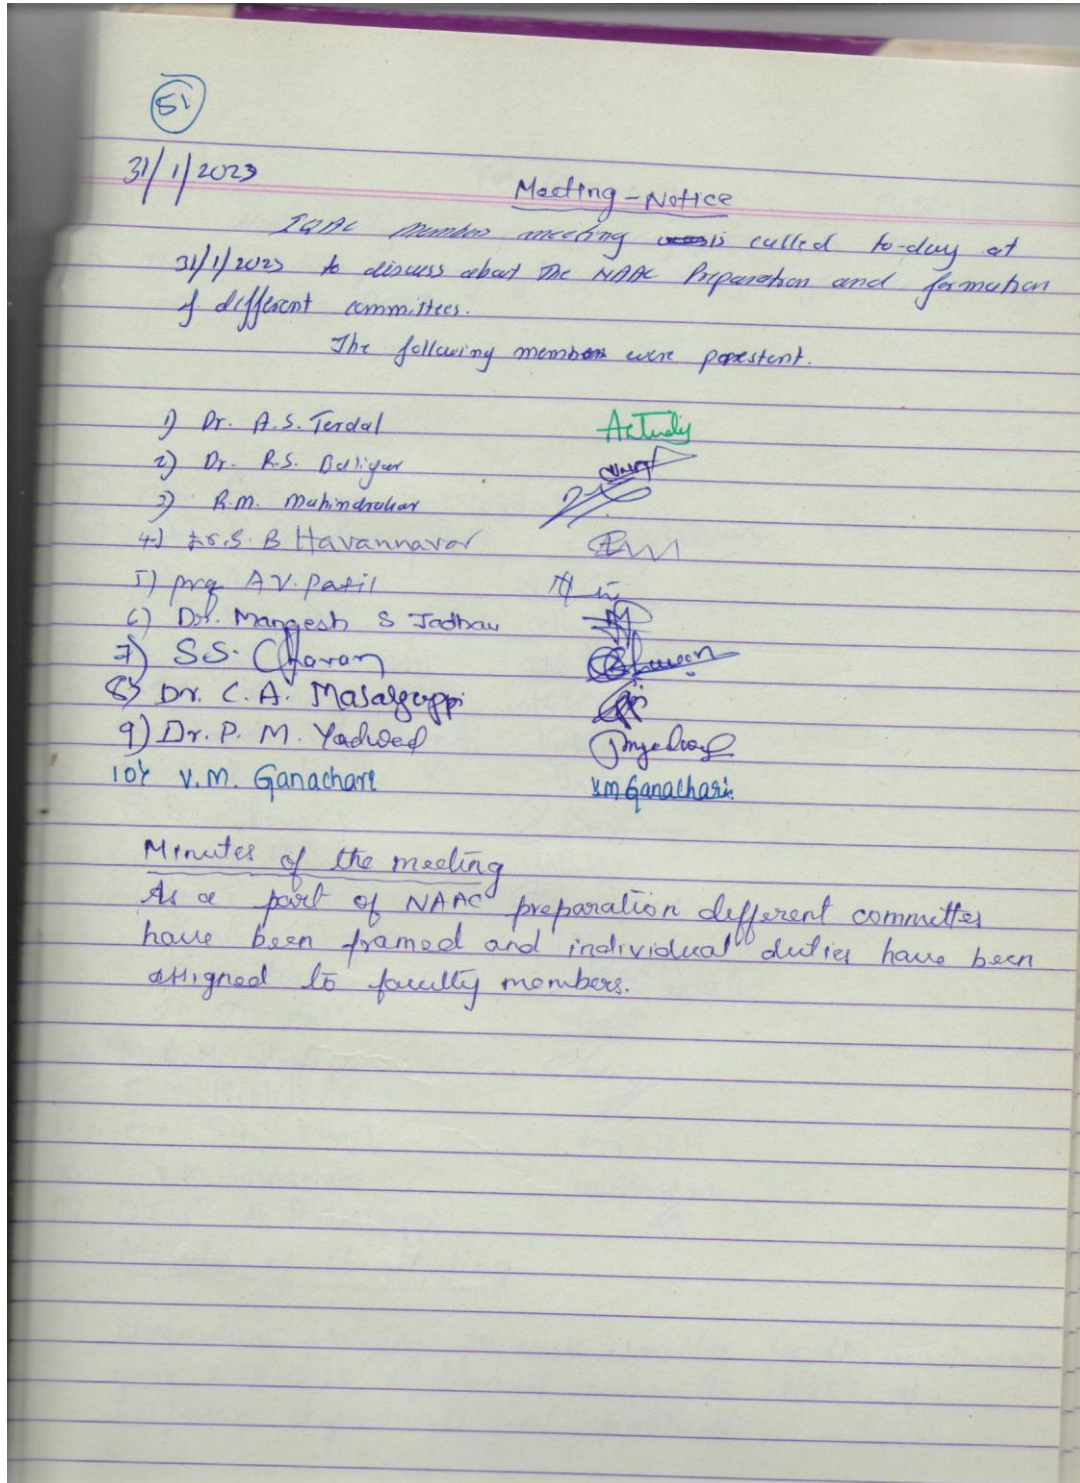 51
31/1/2023
Meeting - Notice
IQAC member meeting is called to-day at
31/1/2023 to discuss about the NAAC Preparation and formation
of different committees.
The following members were porestent.
1) Dr. A.S. Terdal
2) Dr. R.S. Baligar
3) R.M. Mahindrakar
4) Dr. S. B Havannavar
5) prof A V. Patil
6) Dr. Mangesh S Jadhav
7) S S. Chavan Chavan
8) Dr. C. A. Masalguppi
9) Dr. P. M. Yadwad Pmyadwad
10) V. M. Ganachari V.M Ganachari
Minutes of the meeting
As a part of NAAC preparation different committes
have been framed and individual duties have been
assigned to faculty members.